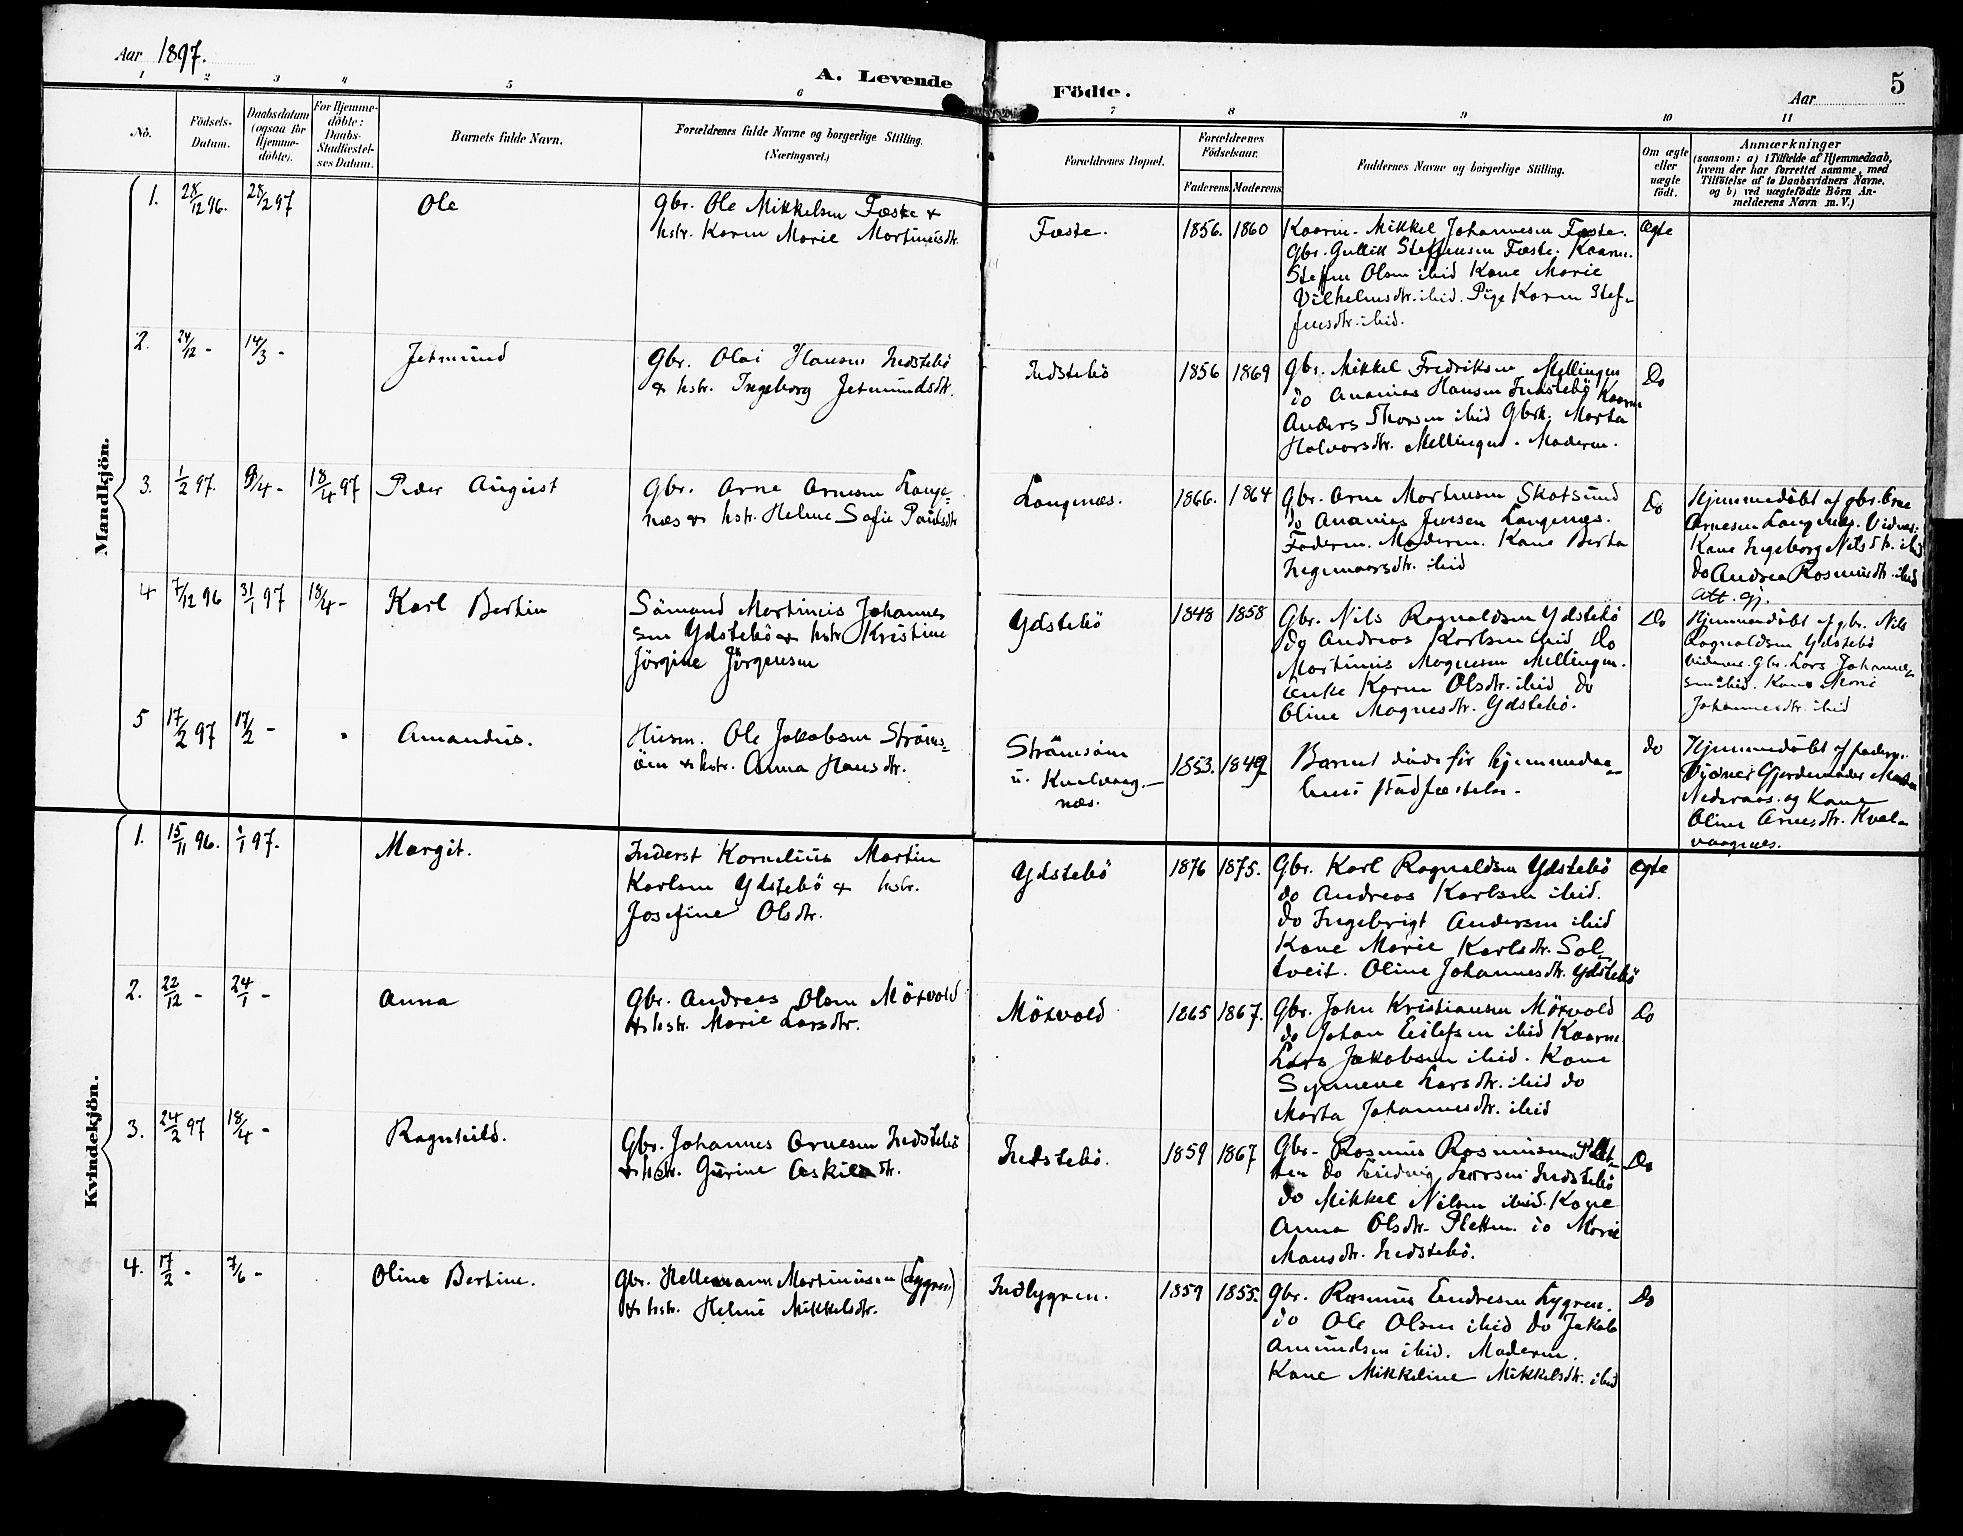 Aar 1897.
A. Levende
Födte.
Aar
5
1
2
3
4
5
6
7
8
9
10
11
No.
Födsels-
Datum.
Daabsdatum
(ogsaa for
Hjemme-
döbte).
For Hjemme-
döbte:
Daabs-
Stadfæstel-
ses Datum.
Barnets fulde Navn.
Forældrenes fulde Navne og borgerlige Stilling.
(Næringsvei.)
Forældrenes Bopæl.
Forældrenes
Födselsaar.
Faderens.
Moderens.
Faddernes Navne og borgerlige Stilling.
Om ægte
eller
uægte
födt.
Anmærkninger
(saasom: a) i Tilfælde af Hjemmedaab,
hvem der har forrettet samme, med
Tilföielse af to Daabsvidners Navne,
og b) ved uægtefödte Börn An-
melderens Navn m. V.)
Mandkjön.
1.
28/12 96.
28/2 97
Ole
Gbr. Ole Mikkelsen Fæste &
hstr. Karen Marie Martinusdtr.
Fæste.
1856.
1860
Kaarm. Mikkel Johannesen Fæste.
Gbr. Gullik Steffensen Fæste. Kaarm.
Steffen Olsen ibid Kone Marie
Vilhelmsdtr. ibid. Pige Karen Stef-
fensdtr. ibid.
ægte
2.
24/12 -
14/3 -
Jetmund
Gbr. Olai Hansen Indstebö
& hstr. Ingeborg Jetmundsdtr.
Indstebö
1856
1869
Gbr. Mikkel Fredriksen Mellingen
do Ananias Hansen Indstebö Kaarm
Anders Thorsen ibid Gbrk. Marta
Halvorsdtr. Mellingen. Moderen.
Do
3.
1/2 97.
9/4 -
18/4 97
Peder August
Gbr. Arne Arnesen Lange-
næs & hstr. Helene Sofie Paulsdtr
Langenæs.
1866.
1864
Gbr. Arne Mortensen Skotsund
do Ananias Iversen Langenæs.
Faderen. Moderen. Kone Berta
Ingemarsdtr. ibid
Do
Hjemmedöbt af gbr. Arne
Arnesen Langenæs. Vidner:
Kone Ingeborg Nilsdtr. ibid
do Andrea Rasmusdtr. ibid
Att. gj.
4
7/12 96
31/1 97
18/4 -
Karl Bertin
Sömand Martinus Johannes
sen Ydstebö & hstr. Kristine
Jörgine Jörgensen
Ydstebö
1848
1858
Gbr. Nils Ragnaldsen Ydstebö
do Andreas Karlsen ibid Do
Martinus Magnesen Mellingen.
Enke Karen Olsdtr. ibid do
Oline Magnesdtr. Ydstebö.
Do
Hjemmedöbt af gbr. Nils
Ragnaldsen Ydstebö
Vidner. Gbr. Lars Johannes-
sen ibid. Kone Marie
Johannesdtr. ibid
5
17/2 97
17/2 -
Amandus.
Husm. Ole Jakobsen Ströms-
öen & hstr. Anna Hansdtr.
Strömsöen
u. Kvalvaag-
næs.
1853.
1849
Barnet döde för hjemmedaa-
bens stadfæstelse.
do
Hjemmedöbt af faderen.
Vidner Gjordemoder
Nederaas. og Kone
Oline Arnesdtr. Kval-
vaagnæs.
Kvindekjön.
1.
15/11 96.
1/1 97.
Margit.
Inderst Kornelius Martin
Karlsen Ydstebö & hstr.
Josefine Olsdtr.
Ydstebö
1876
1875.
Gbr. Karl Ragnaldsen Ydstebö
do Andreas Karlsen ibid.
do Ingebrigt Andersen ibid
Kone Marie Karlsdtr. Sol-
tveit. Oline Johannesdtr. Ydstebö
ægte
2.
22/12 -
24/1 -
Anna
Gbr. Andreas Olsen Mörvold
& hstr. Marie Larsdtr.
Mörvold
1865
1867.
Gbr. John Kristiansen Mörvold
do Johan Eilefsen ibid Kaarm.
Lars Jakobsen ibid. Kone
Synneve Larsdtr. ibid do
Marta Johannesdtr. ibid
Do
3.
24/2 97
18/4 -
Ragnhild.
Gbr. Johannes Arnesen Indstebö
& hstr. Gurine Askildtr.
Indstebö.
1859
1867
Gbr. Rasmus Rasmussen Plet-
ten do Ludvig Larsen Indstebö
do Mikkel Nilsen ibid. Kone
Anna Olsdtr. Pletten. do Marie
Hansdtr. Indstebö.
Do
4.
17/2 -
7/6 -
Oline Bertine.
Gbr. Hellemann Martinusen (Lygren)
& hstr. Helene Mikkelsdtr.
Indlygren.
1859
1855.
Gbr. Rasmus Endresen Lygren.
do Ole Olsen ibid do Jakob
Amundsen ibid. Moderen.
Kone Mikkeline Mikkelsdtr. ibid
Do